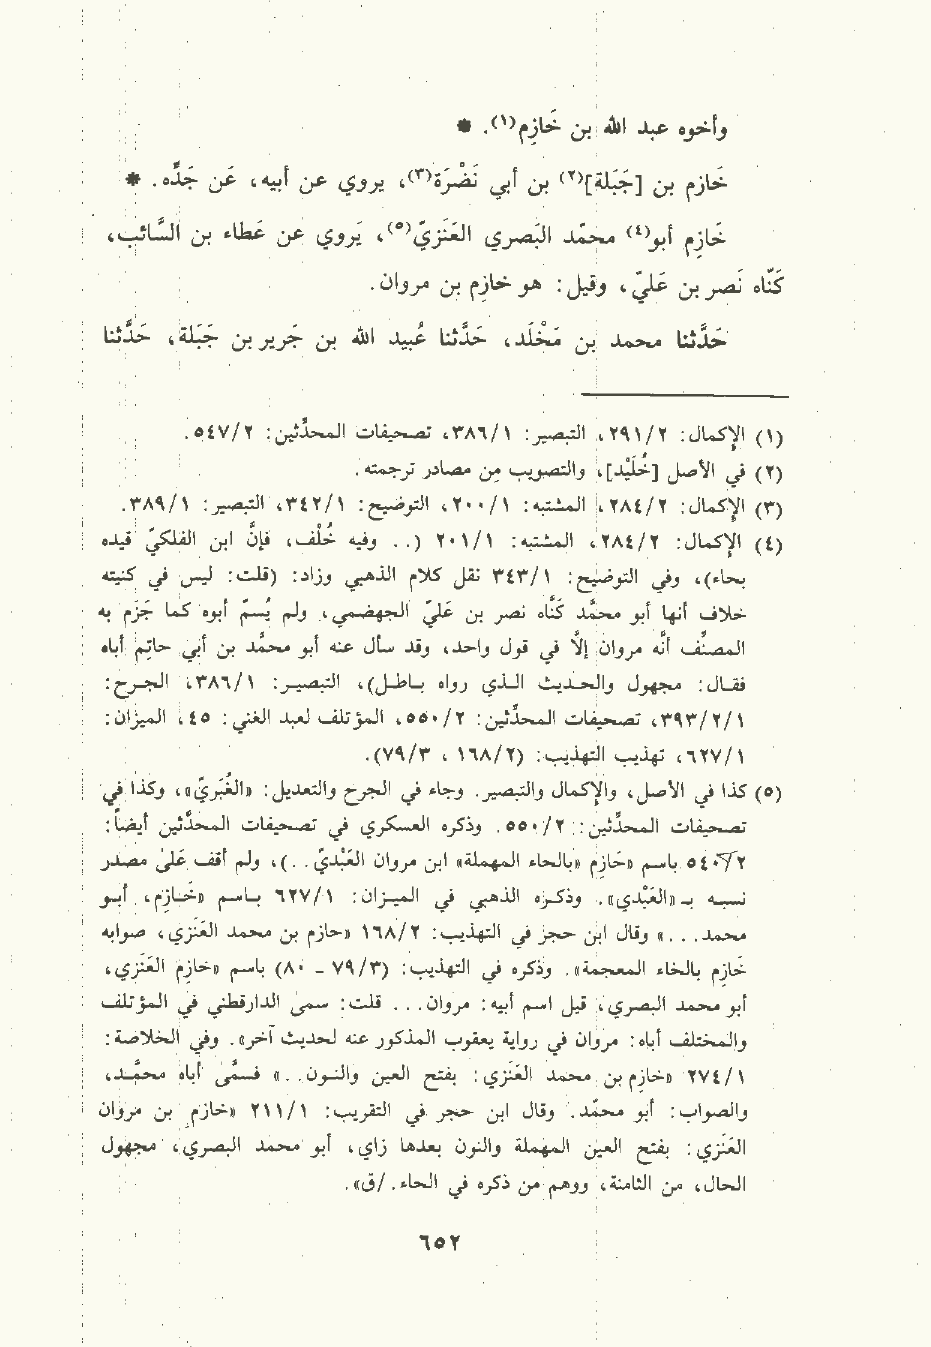 وأخوه عبد الله بن خَازِم(١). *
خَازم بن [جَبَلة](٢) بن أبي نَضْرَة(٣)، يروي عن أبيه، عَن جَدِّه. *
خَازِم أبو(٤) محمّد البَصري العَنَزيّ(٥)، يَروي عن عَطاء بن السَّائب،
كَنّاه نَصر بن عَليّ، وقيل: هو خازِم بن مروان.
حَدَّثنا محمد بن مَخْلَد، حَدَّثنا عُبيد الله بن جَرير بن جَبَلة، حَدَّثنا
(١) الإكمال: ٢/ ٢٩١، التبصير: ١/ ٣٨٦، تصحيفات المحدِّثين: ٢/ ٥٤٧.
(٢) في الأصل [خُلَيْد]، والتصويب مِن مصادر ترجمته.
(٣) الإكمال: ٢/ ٢٨٤، المشتبه: ١/ ٢٠٠، التوضيح: ١/ ٣٤٢، التبصير: ١/ ٣٨٩.
(٤) الإكمال: ٢/ ٢٨٤، المشتبه: ١/ ٢٠١ (.. وفيه خُلْف، فإنَّ ابن الفلكيّ قيده
بحاء)، وفي التوضيح: ١/ ٣٤٣ نقل كلام الذهبي وزاد: (قلت: ليس في كنيته
خلاف أنها أبو محمَّد كَنَّاه نصر بن عَليّ الجهضمي، ولم يُسمّ أبوه كما جَزَم به
المصنِّف أنَّه مروان إلَّا في قول واحد، وقد سأل عنه أبو محمَّد بن أبي حاتِم أباه
فقـال: مجهول والحـديث الـذي رواه بـاطـل)، التبصيـر: ١/ ٣٨٦، الجـرح:
١/ ٢/ ٣٩٣، تصحيفات المحدِّثين: ٢/ ٥٥٠، المؤتلف لعبد الغني: ٤٥، الميزان:
١/ ٦٢٧، تهذيب التهذيب: (٢/ ١٦٨ ، ٣/ ٧٩).
(٥) كذا في الأصل، والإكمال والتبصير. وجاء في الجرح والتعديل: «الغُبَريّ»، وكذا في
تصحيفات المحدِّثين: ٢/ ٥٥٠. وذكره العسكري في تصحيفات المحدَّثين أيضاً:
٢/ ٥٤٠ باسم «حَازِم «بالحاء المهملة» ابن مروان العَبْديّ..)، ولم أقف عَلىٰ مصدر
نسبـه بـ «العَبْدي». وذكـره الذهبي في الميـزان: ١/ ٦٢٧ بـاسم «خَـازِم، أبـو
محمد...» وقال ابن حجر في التهذيب: ٢/ ١٦٨ «حازم بن محمد العَنَزي، صوابه
خَازِم بالخاء المعجمة». وذكره في التهذيب: (٣/ ٧٩ - ٨٠) باسم «خازِم العَنَزي،
أبو محمد البصري، قيل اسم أبيه: مروان... قلت: سمىٰ الدارقطني في المؤتلف
والمختلف أباه: مروان في رواية يعقوب المذكور عنه لحديث آخر». وفي الخلاصة:
١/ ٢٧٤ «خازِم بن محمد العَنَزي: بفتح العين والنـون..» فسمَّى أباه محمَّـد،
والصواب: أبو محمّد. وقال ابن حجر في التقريب: ١/ ٢١١ «خازم بن مروان
العَنَزي: بفتح العين المهملة والنون بعدها زاي، أبو محمد البصري، مجهول
الحال، من الثامنة، ووهم من ذكره في الحاء./ق».
٦٥٢